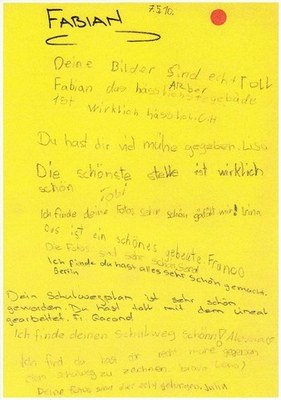 FABIAN
7.5.10.
Deine Bilder sind echt toll
Fabian das hass
ist wirklich hässlich
Du hast dir viel mühe gegeben. Lisa
Die schönste stelle ist wirklich
schön Tobi
Ich finde deine Fotos sehr schön gefällt mir!
ist ein schönes gebeute Franco
Die Fotos sind sehr schön
Ich finde du hast alles sehr schön gemacht.
Berlin
Dein Schulwegplan ist sehr schön
geworden Du hast toll mit dem Lineal
gearbeitet. Fr.
Ich finde deinen Schulweg schön!
Ich find du hast dir mühe gegeben
zu zeichnen.
Deine fotos sind dir echt gelungen. Julia